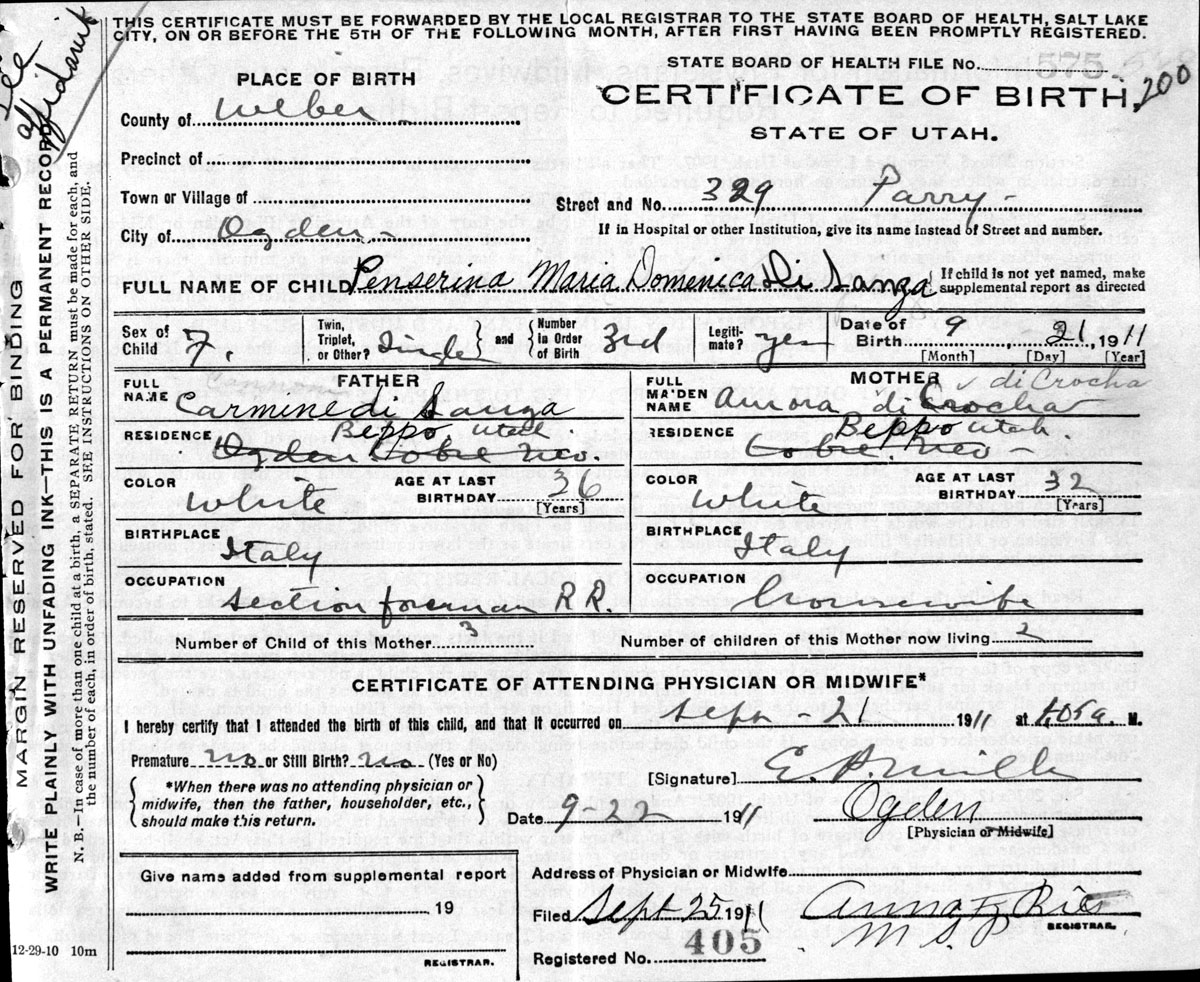 THIS CERTIFICATE MUST BE FORWARDED BY THE LOCAL REGISTRAR TO THE STATE BOARD OF HEALTH, SALT LAKE
CITY, ON OR BEFORE THE 5TH OF THE FOLLOWING MONTH, AFTER FIRST HAVING BEEN PROMPTLY REGISTERED.
See
affidavit
MARGIN RESERVED FOR BINDING
WRITE PLAINLY WITH UNFADING INK—THIS IS A PERMANENT RECORD
N. B.—In case of more than one child at a birth, a SEPARATE RETURN must be made for each, and
the number of each, in order of birth, stated. SEE INSTRUCTIONS ON OTHER SIDE.
STATE BOARD OF HEALTH FILE No. 575
200
PLACE OF BIRTH
CERTIFICATE OF BIRTH
STATE OF UTAH.
County of Weber
Precinct of
Town or Village of
Street and No. 329 Parry
City of Ogden
If in Hospital or other Institution, give its name instead of Street and number.
FULL NAME OF CHILD Penserina Maria Domenica Di Sanza
If child is not yet named, make
supplemental report as directed
Sex of Child F.
Twin, Triplet, or Other? Single
and Number in Order of Birth 3rd
Legitimate? yes
Date of Birth 9 21, 1911
[Month] [Day] [Year]
FATHER
FULL NAME Carmine di Sanza
RESIDENCE Beppo, Utah.
Ogden Cobre Nev.
COLOR White
AGE AT LAST BIRTHDAY 36
[Years]
BIRTHPLACE Italy
OCCUPATION Section foreman R.R.
MOTHER
di Crocha
FULL MAIDEN NAME Aurora di Crocha
RESIDENCE Beppo Utah.
Cobre Nev
COLOR White
AGE AT LAST BIRTHDAY 32
[Years]
BIRTHPLACE Italy
OCCUPATION Housewife
Number of Child of this Mother 3
Number of children of this Mother now living 2
CERTIFICATE OF ATTENDING PHYSICIAN OR MIDWIFE*
I hereby certify that I attended the birth of this child, and that it occurred on Sept - 21 1911 at M.
Premature no or Still Birth? no (Yes or No)
*When there was no attending physician or
midwife, then the father, householder, etc.,
should make this return.
[Signature] E.
Date 9-22 1911
Ogden
[Physician or Midwife]
Give name added from supplemental report
19
REGISTRAR.
Address of Physician or Midwife
Filed Sept 25 1911
Anna
REGISTRAR.
405
Registered No.
12-29-10 10m